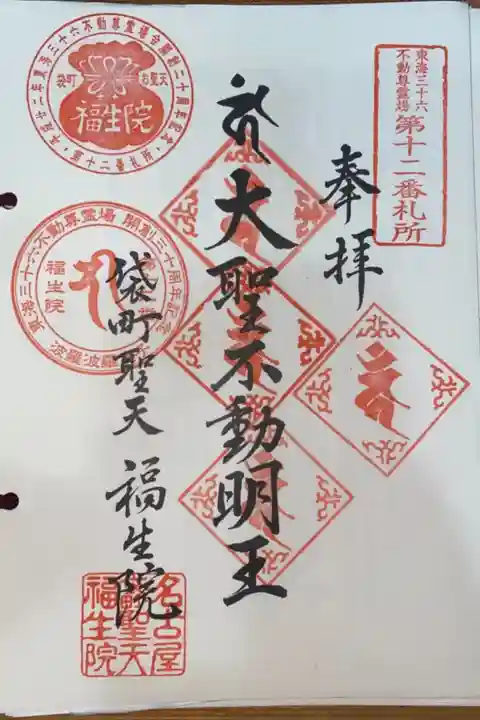 東海三十六
不動尊霊場
第十二番札所
奉拝
大聖不動明王
袋町聖天 福生院
袋町 お聖天
福生院
東海三十六不動尊霊場 開創三十周年記念
福生院
波羅波羅
名古屋
袋町聖天
福生院